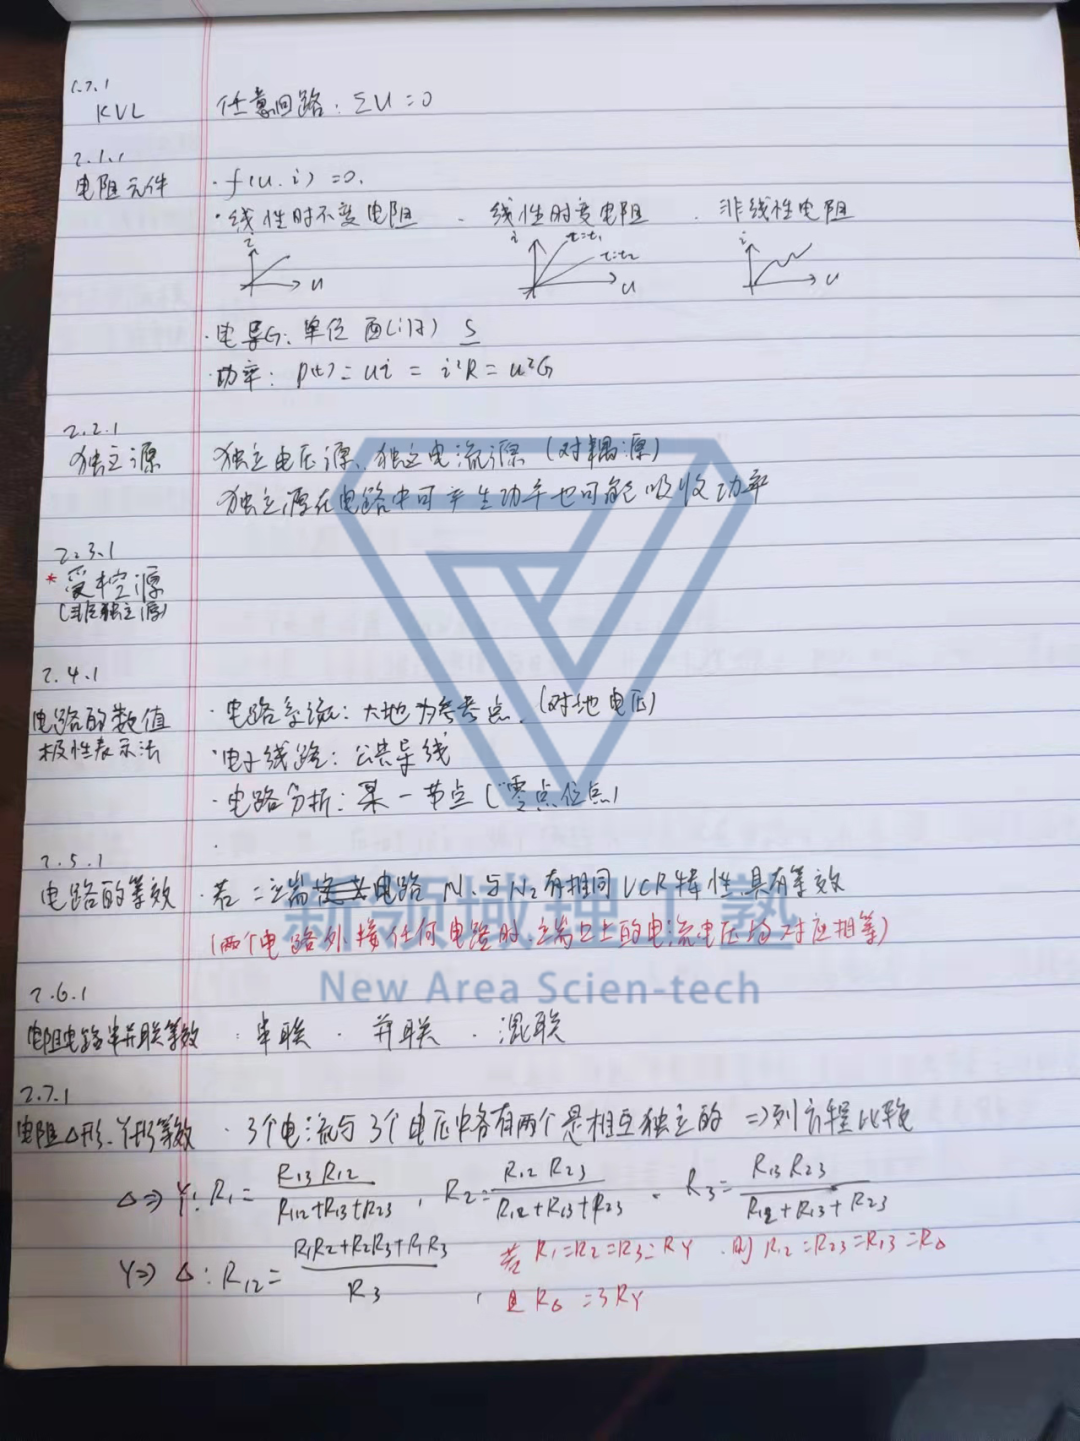 1.7.1
KVL 任意回路: ΣU=0
2.1.1
电阻元件 · f(u.i)=0.
· 线性时不变电阻 . 线性时变电阻 . 非线性电阻
i u
i t=t₁ t=t₂ u
i u
· 电导G: 单位 西(门子) S
· 功率: p(t)=ui = i²R = u²G
2.2.1
独立源 独立电压源、独立电流源 (对耦源)
独立源在电路中可产生功率也可能吸收功率
2.3.1
* 受控源
(非独立源)
2.4.1
电路的数值 · 电路系统: 大地为参考点. (对地电压)
极性表示法 · 电子线路: 公共导线
· 电路分析: 某一节点 (零点位点)
2.5.1
电路的等效 · 若二立端电路 N₁与N₂有相同VCR特性具有等效
(两个电路外接任何电路时.立端口上的电流电压均对应相等)
新领域理工塾
New Area Scien-tech
2.6.1
电阻电路串并联等效 · 串联 · 并联 · 混联
2.7.1
电阻△形.Y形等效 · 3个电流与3个电压中各有两个是相互独立的 ⇒列方程比较
△⇒Y: R₁= R₁₃R₁₂/(R₁₂+R₁₃+R₂₃) , R₂= R₁₂R₂₃/(R₁₂+R₁₃+R₂₃) . R₃= R₁₃R₂₃/(R₁₂+R₁₃+R₂₃)
Y⇒△: R₁₂= (R₁R₂+R₂R₃+R₁R₃)/R₃ 若 R₁=R₂=R₃=RY .则 R₁₂=R₂₃=R₁₃=R△
, 且 R△ =3RY